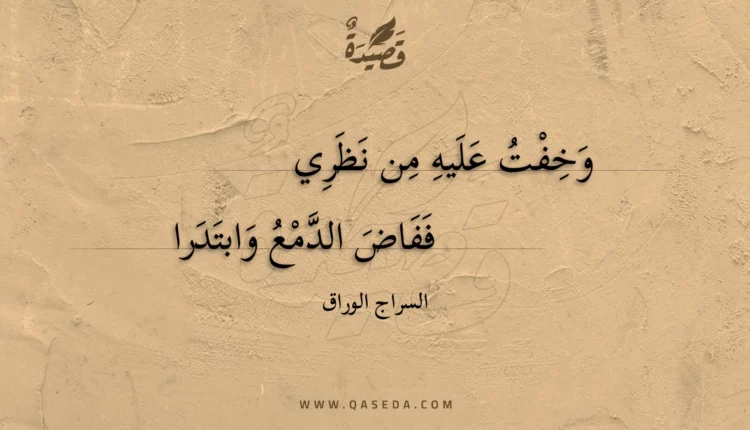 قَصِيدَةٌ
وَخِفْتُ عَلَيهِ مِن نَظَرِي
فَفَاضَ الدَّمْعُ وَابتَدَرا
السراج الوراق
WWW.QASEDA.COM